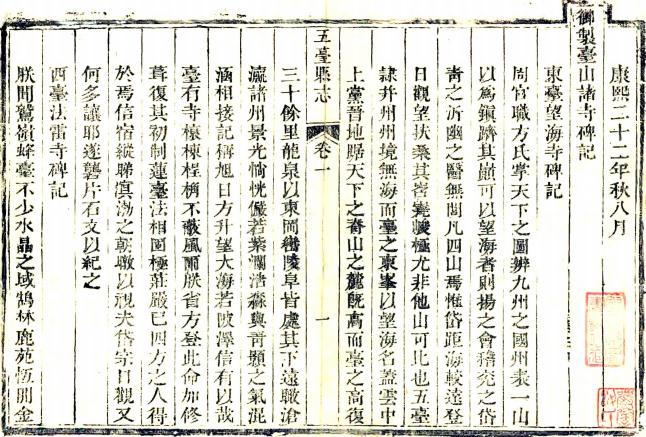 康熙二十二年秋八月
御製臺山諸寺碑記
東臺望海寺碑記
周官職方氏掌天下之圖辨九州之國州表一山
以為鎮躋其巔可以望海者則揚之會稽兖之岱
青之沂幽之醫無閭凡四山焉惟岱距海較近登
日觀望扶桑其峇嶤峻極尤非他山可比也五臺
隷并州州境無海而臺之東峯以望海名蓋雲中
上黨晉地踞天下之脊山之麓旣高而臺之高復
五臺縣志
卷一
一
三十餘里龍泉以東岡巒陵阜皆處其下遠瞰滄
瀛諸州景光惝恍儼若紫瀾浩淼與青顥之氣混
涵相接記稱旭日方升望大海若陂澤信有以哉
臺有寺榱棟桯桷不蔽風雨朕省方登此命加修
葺復其初制蓮臺法相罔極莊嚴已四方之人得
於焉信宿縱睇溟渤之朝暾以視夫岱宗日觀又
何多讓耶遂礱片石文以紀之
西臺法雷寺碑記
朕聞鷲嶺蜂臺不少水晶之域鶴林鹿苑恆開金